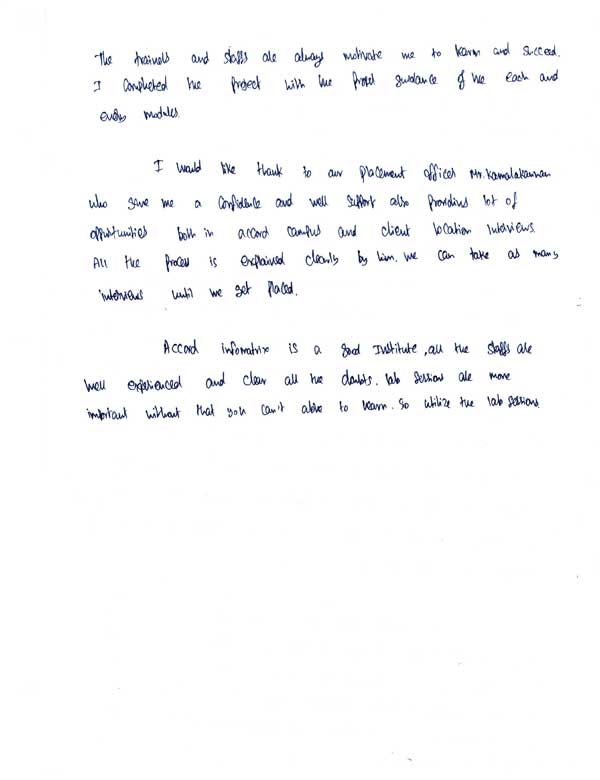 The trainers and staffs are always motivate me to learn and succeed.
I completed the project with the proper guidance of the each and
every modules.
I would like thank to our placement officer Mr. Kamalakannan
who gave me a confidence and well support also providing lot of
opportunities both in accord campus and client location interviews.
All the process is explained clearly by him. We can take as many
interviews until we get placed.
Accord infomatrix is a good Institute, all the staffs are
well experienced and clear all the doubts. lab sessions are more
important without that you can't able to learn. So utilize the lab sessions.